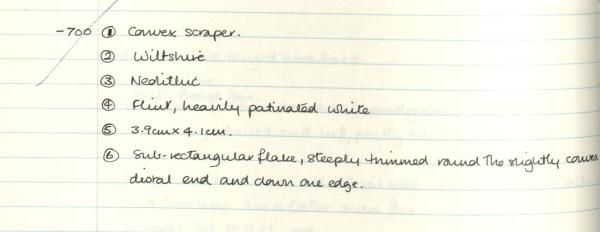 -700 ① Convex scraper.
② Wiltshire
③ Neolithic
④ Flint, heavily patinated white
⑤ 3.9cm x 4.1cm.
⑥ Sub-rectangular flake, steeply trimmed round the slightly convex
distal end and down one edge.